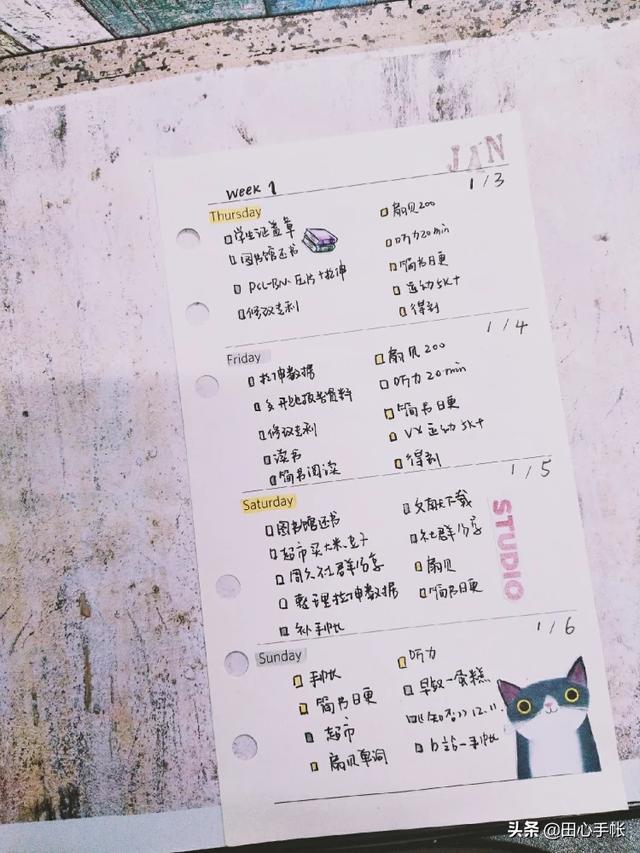 JAN
week 1
1/3
Thursday
学生证盖章
图书馆还书
PCL-BN. 压片+拉伸
修改专利
扇贝200
听力20min
简书日更
运动5K+
得到
1/4
Friday
拉伸数据
修改专利
读书
简书阅读
扇贝200
听力20min
简书日更
VX运动5K+
得到
1/5
Saturday
图书馆还书
超市买大米、
周久社群分享
整理拉伸数据
补手帐
文献下载
社群分享
扇贝
简书日更
STUDIO
1/6
Sunday
手帐
简书日更
超市
扇贝单词
听力
早餐一蛋糕
12.11.
b站一手帐
头条 @田心手帐